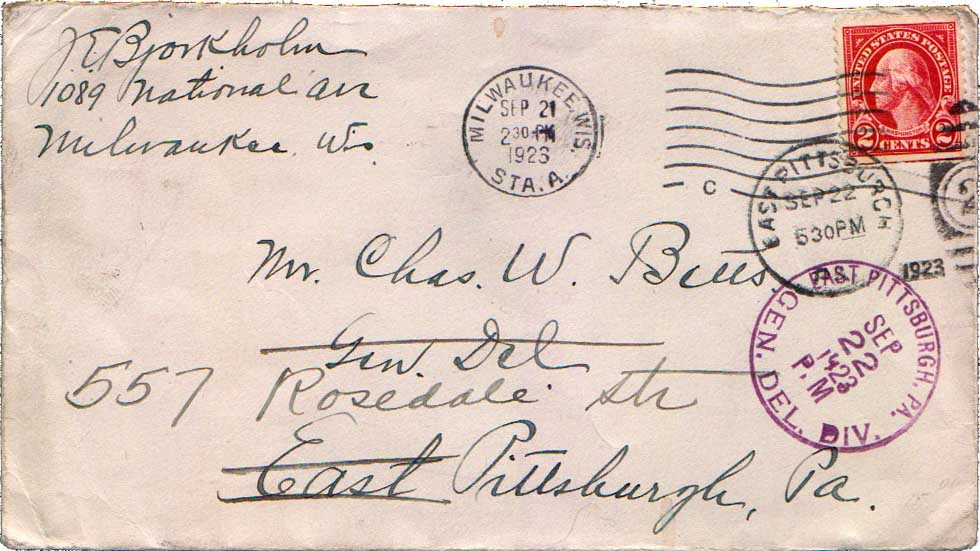 J E Bjorkholm
1089 National Ave
Milwaukee Wis.
MILWAUKEE, WIS.
SEP 21
2 30 PM
1923
STA. A.
C
UNITED STATES POSTAGE
WASHINGTON
2 CENTS 2
EAST PITTSBURGH
SEP 22
530PM
1923
Mr. Chas. W. Betts.
Gen. Del
557 Rosedale Str
East Pittsburgh, Pa.
EAST PITTSBURGH, PA.
SEP
22
1923
P.M
GEN. DEL. DIV.